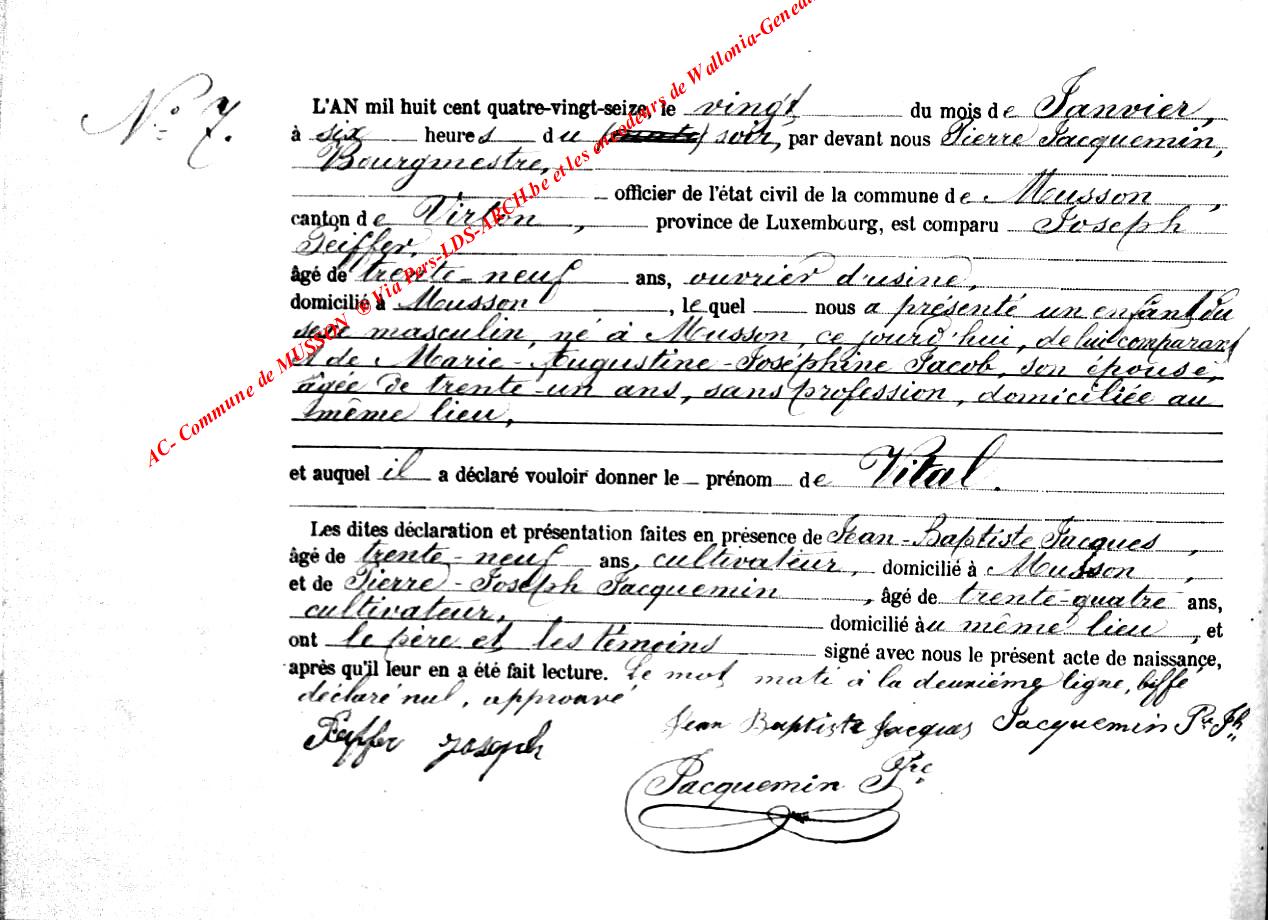 N° 7.
L'AN mil huit cent quatre-vingt-seize, le vingt du mois de Janvier,
à six heures du soir, par devant nous Pierre Jacquemin,
Bourgmestre,
officier de l'état civil de la commune de Musson,
canton de Virton, province de Luxembourg, est comparu Joseph
Peiffer,
âgé de trente-neuf ans, ouvrier d'usine,
domicilié à Musson, le quel nous a présenté un enfant du
sexe masculin, né à Musson, ce jourd'hui, de lui comparant
et de Marie-Augustine-Joséphine Jacob, son épouse,
âgée de trente-un ans, sans profession, domiciliée au
même lieu,
et auquel il a déclaré vouloir donner le prénom de Vital.
Les dites déclaration et présentation faites en présence de Jean-Baptiste Jacques,
âgé de trente-neuf ans, cultivateur, domicilié à Musson,
et de Pierre-Joseph Jacquemin, âgé de trente-quatre ans,
cultivateur, domicilié au même lieu, et
ont le père et les témoins signé avec nous le présent acte de naissance,
après qu'il leur en a été fait lecture. Le mot mati à la deuxième ligne, biffé
déclaré nul, approuvé
Peiffer Joseph
Jean Baptiste Jacques Jacquemin Pre Jh
Jacquemin Pre
AC- Commune de MUSSON ® Via Pers-LDS-ARCH.be et les encodeurs de Wallonia-Genea